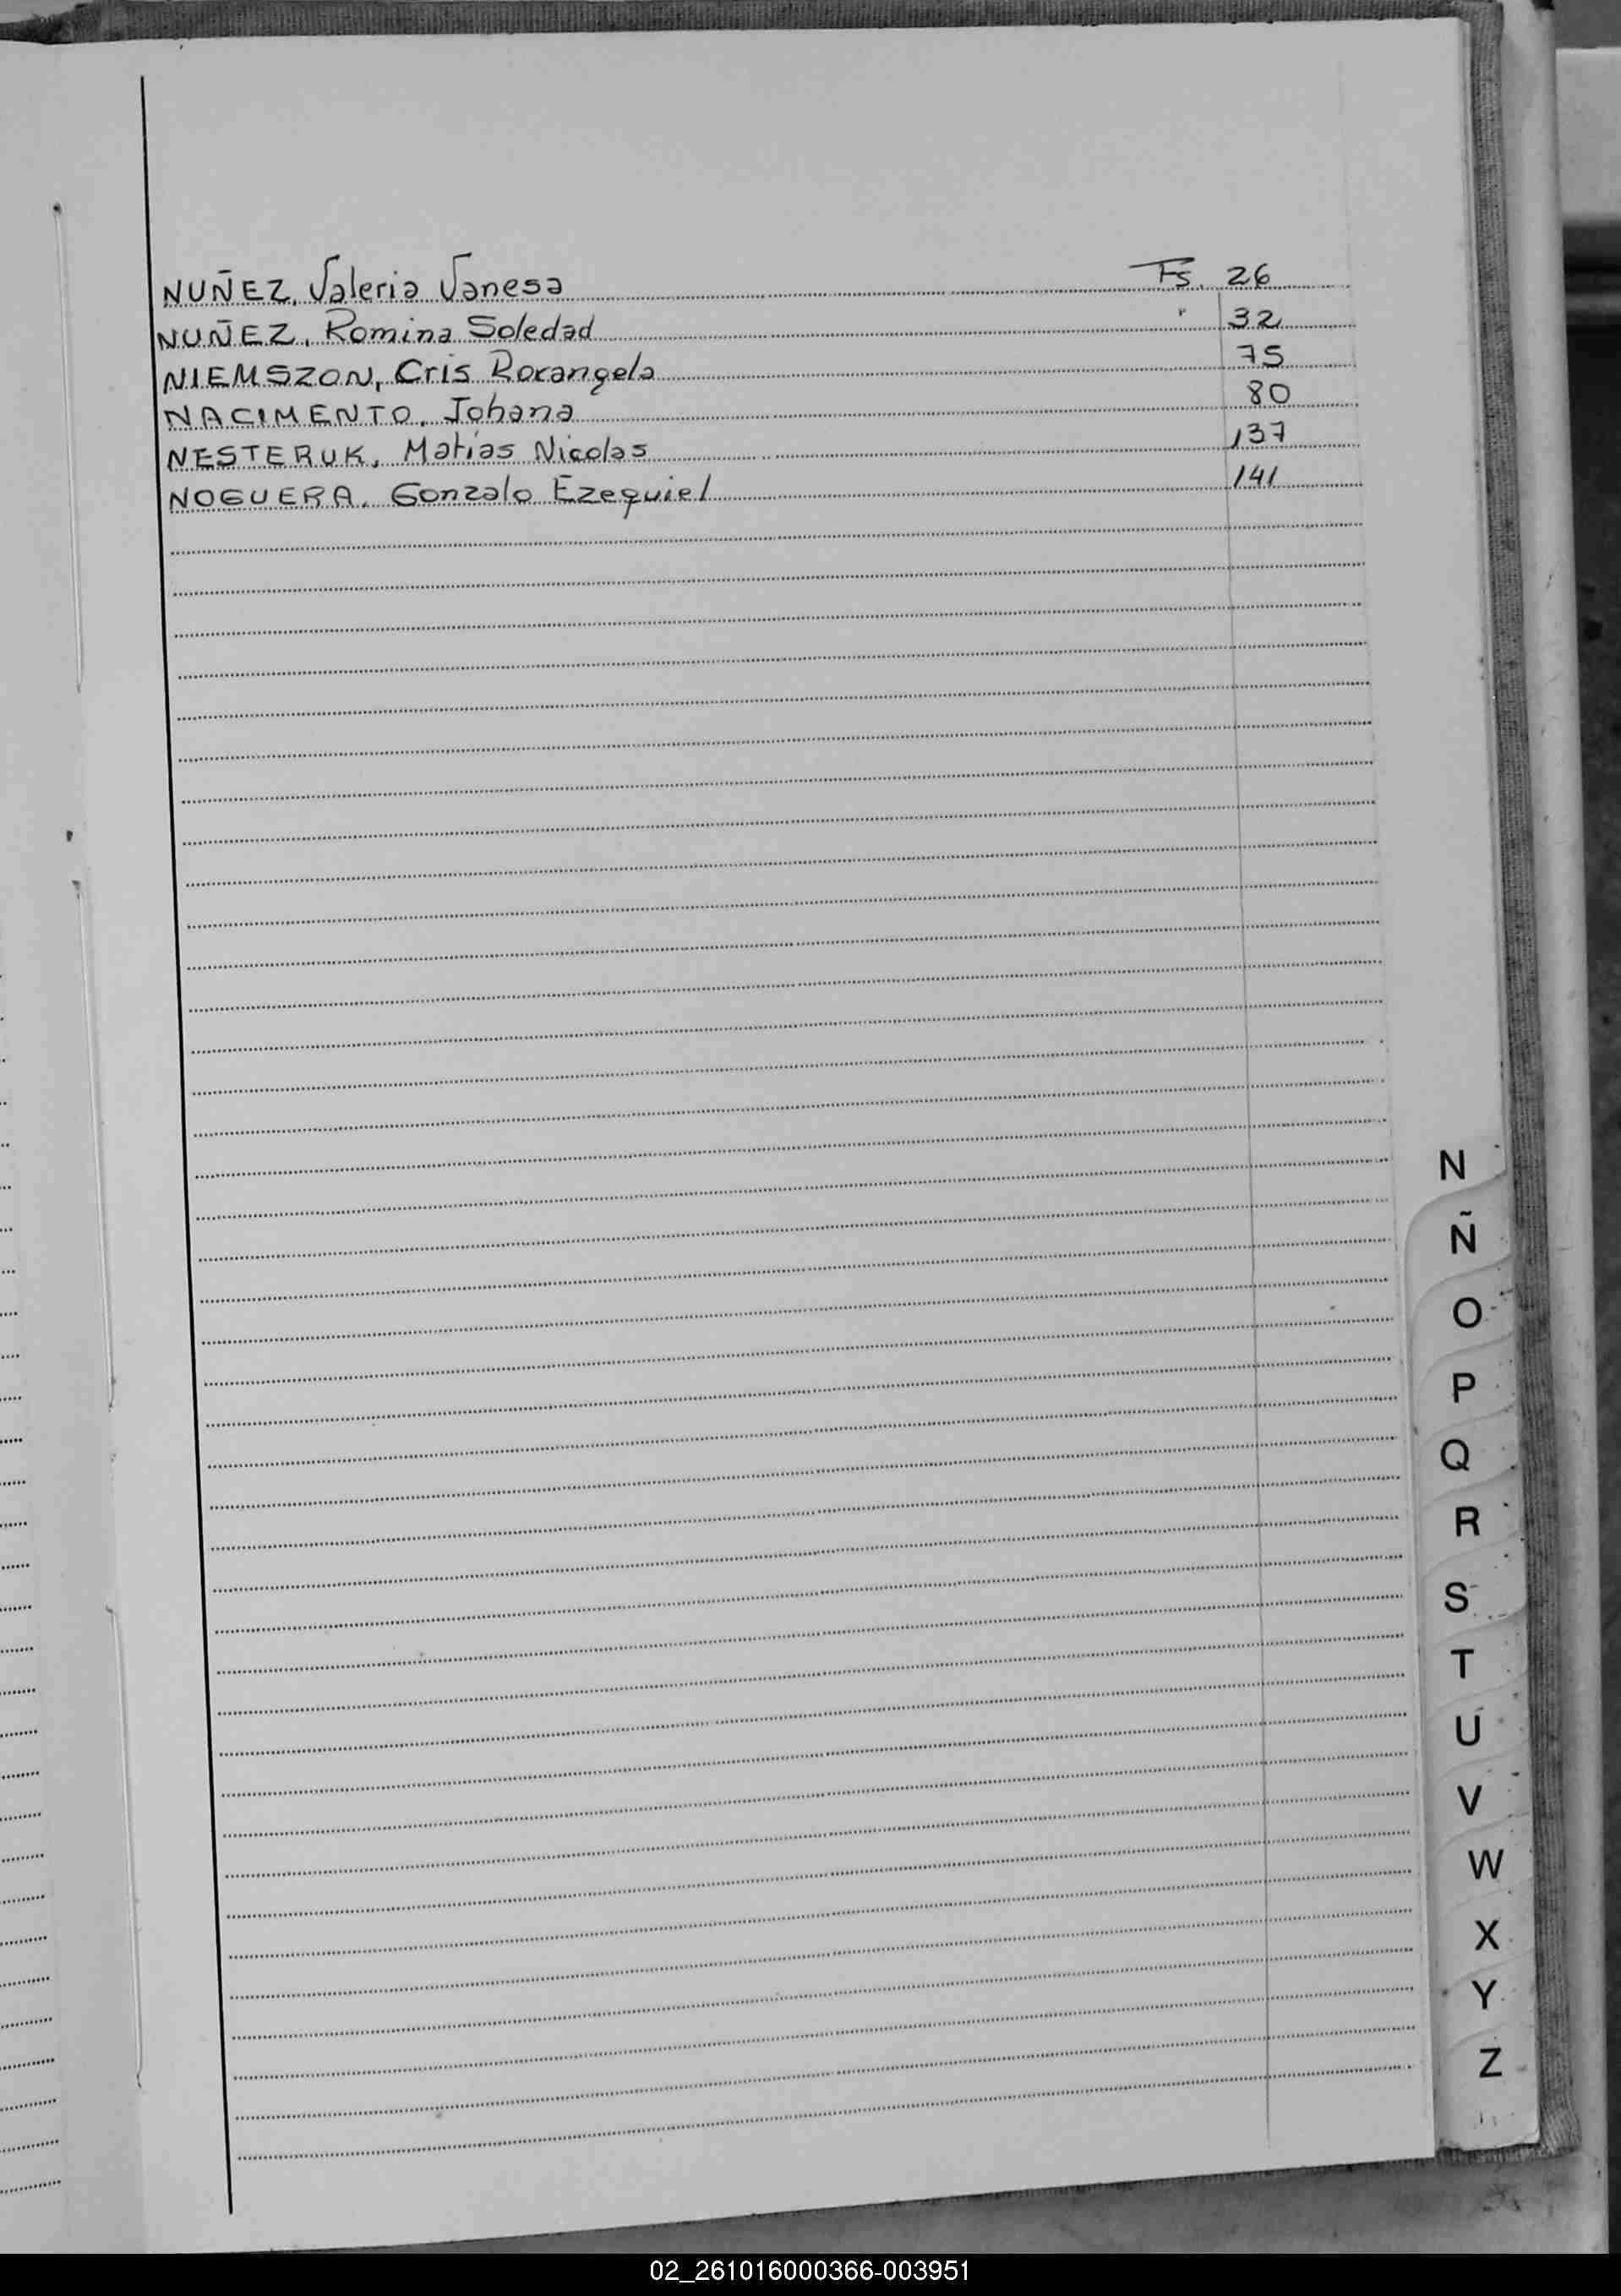 NUÑEZ, Valeria Vanesa Fs. 26
NUÑEZ, Romina Soledad " 32
NIEMSZON, Cris Rorangela 75
NACIMENTO, Johana 80
NESTERUK, Matías Nicolas 137
NOGUERA, Gonzalo Ezequiel 141
N
Ñ
O
P
Q
R
S
T
U
V
W
X
Y
Z
02_261016000366-003951